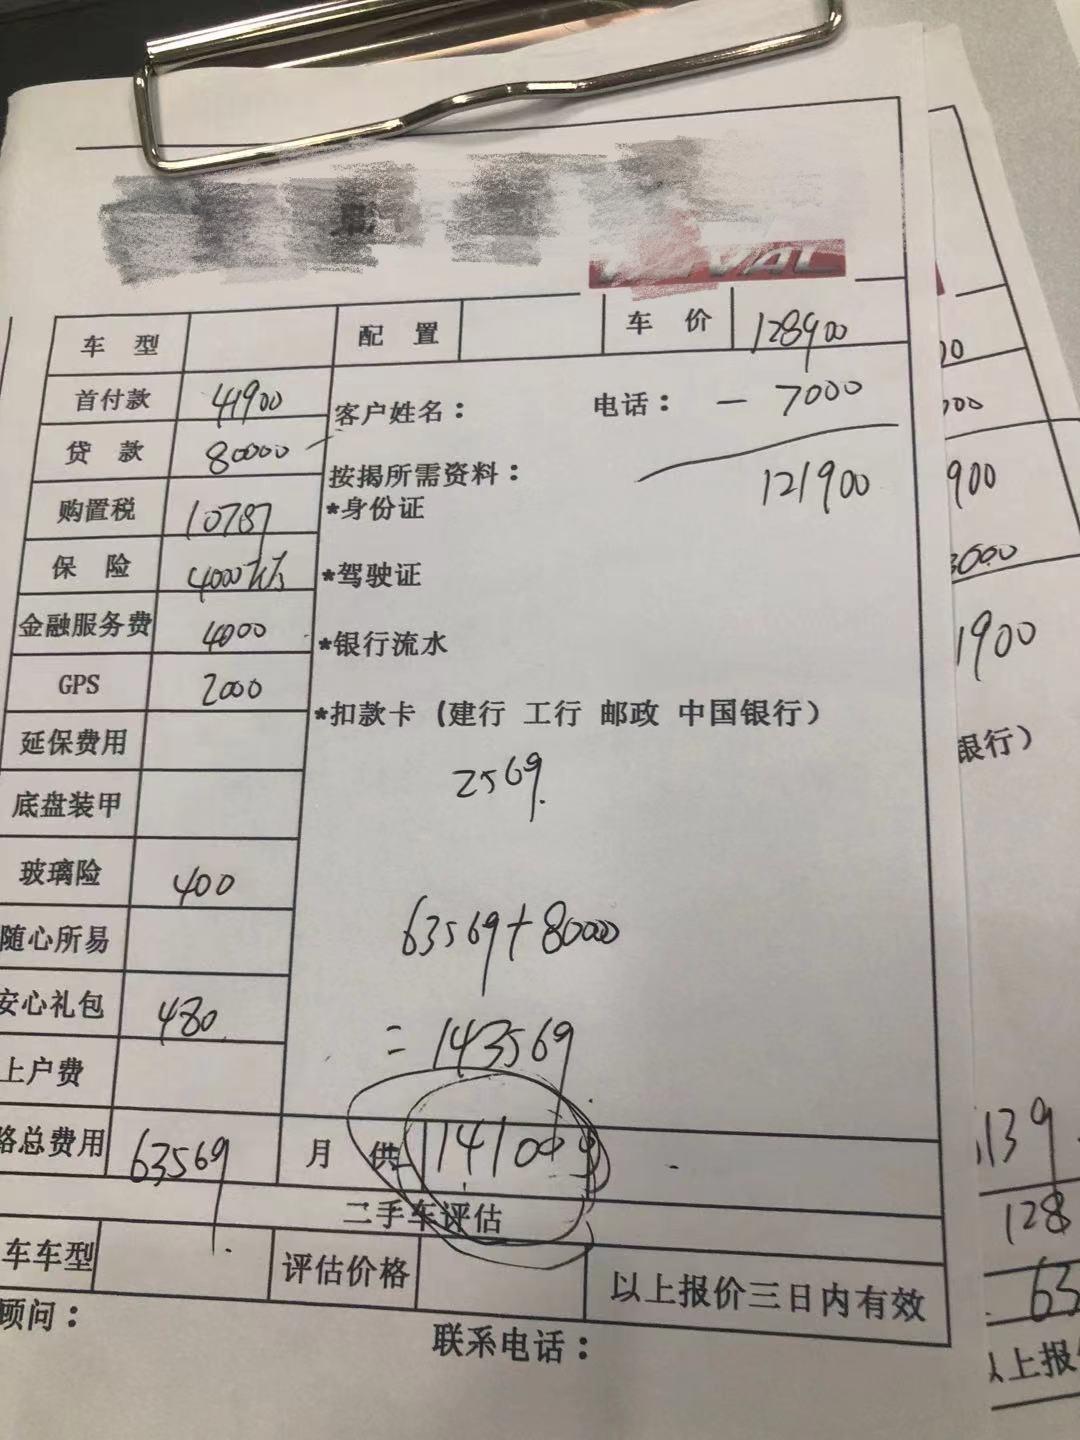 车 型 配 置 车 价 128900
首付款 41900 客户姓名： 电话： - 7000
贷 款 80000 按揭所需资料： 121900
购置税 10787 *身份证
保 险 4000 *驾驶证
金融服务费 4000 *银行流水
GPS 2000 *扣款卡（建行 工行 邮政 中国银行）
延保费用 2569.
底盘装甲
玻璃险 400
随心所易 63569+80000
安心礼包 480
上户费 = 143569
总费用 63569 月 供
二手车评估
车车型 评估价格 以上报价三日内有效
顾问：
联系电话：
900
1900
银行）
139
128
63
以上报